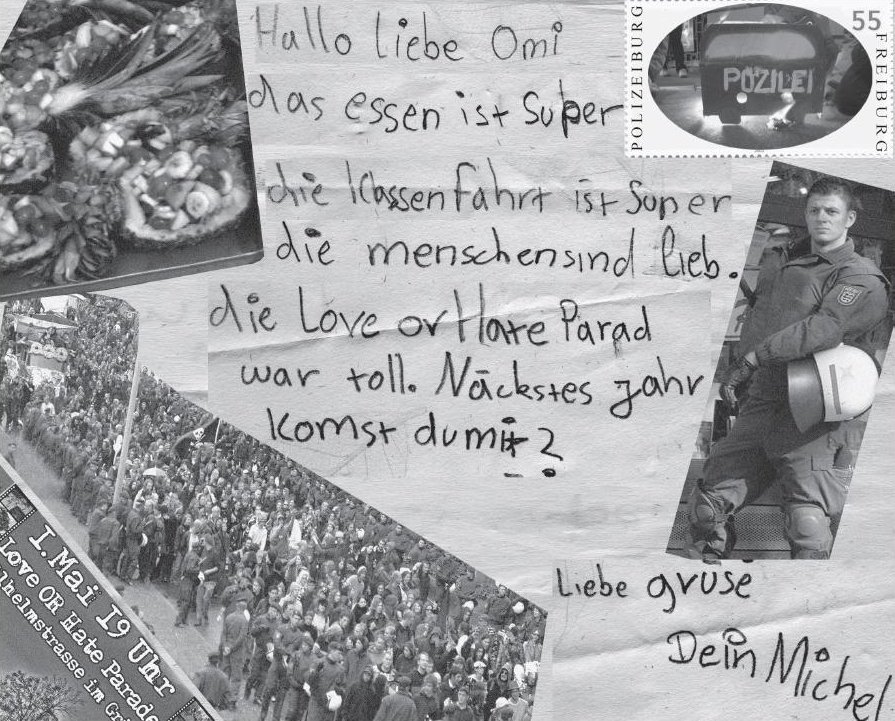 Hallo liebe Omi
das essen ist Super
die Klassenfahrt ist Super
die menschensind lieb.
die Love or Hate Parad
war toll. Näckstes jahr
komst dumit?
Liebe gruse
Dein Michel
POLIZEIBURG
55
FREIBURG
POZILEI
1.Mai 19 Uhr
Love OR Hate Parade
lhelmstrasse im Gr